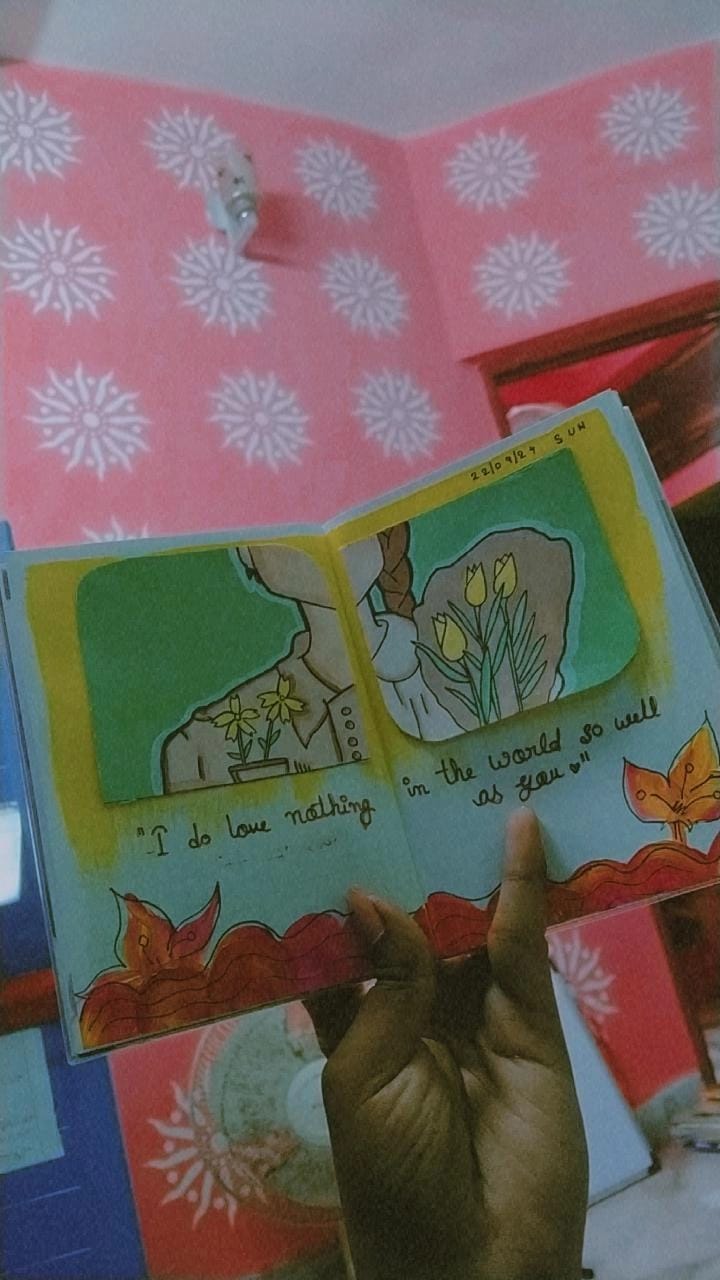 22/09/24 SUN
"I do love nothing in the world so well
as you ♥"